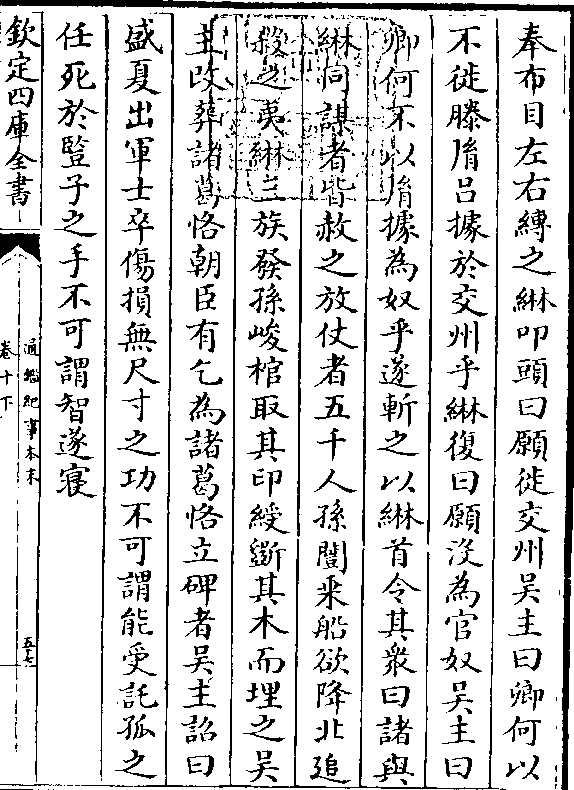 奉布目左右縛之綝叩頭曰願徙交州吳主曰卿何以
不徙滕胤吕據於交州乎綝復曰願没為官奴吳主曰
卿何不以胤據為奴乎遂斬之以綝首令其衆曰諸與
綝同謀者皆赦之放仗者五千人孫闓乘船欲降北追
殺之夷綝三族發孫峻棺取其印綬斵其木而埋之吳
主改葬諸葛恪朝臣有乞為諸葛恪立碑者吳主詔曰
盛夏出軍士卒傷損無尺寸之功不可謂能受託孤之
任死於豎子之手不可謂智遂寢
欽定四庫全書
通鑑紀事本末
卷十下
五十七